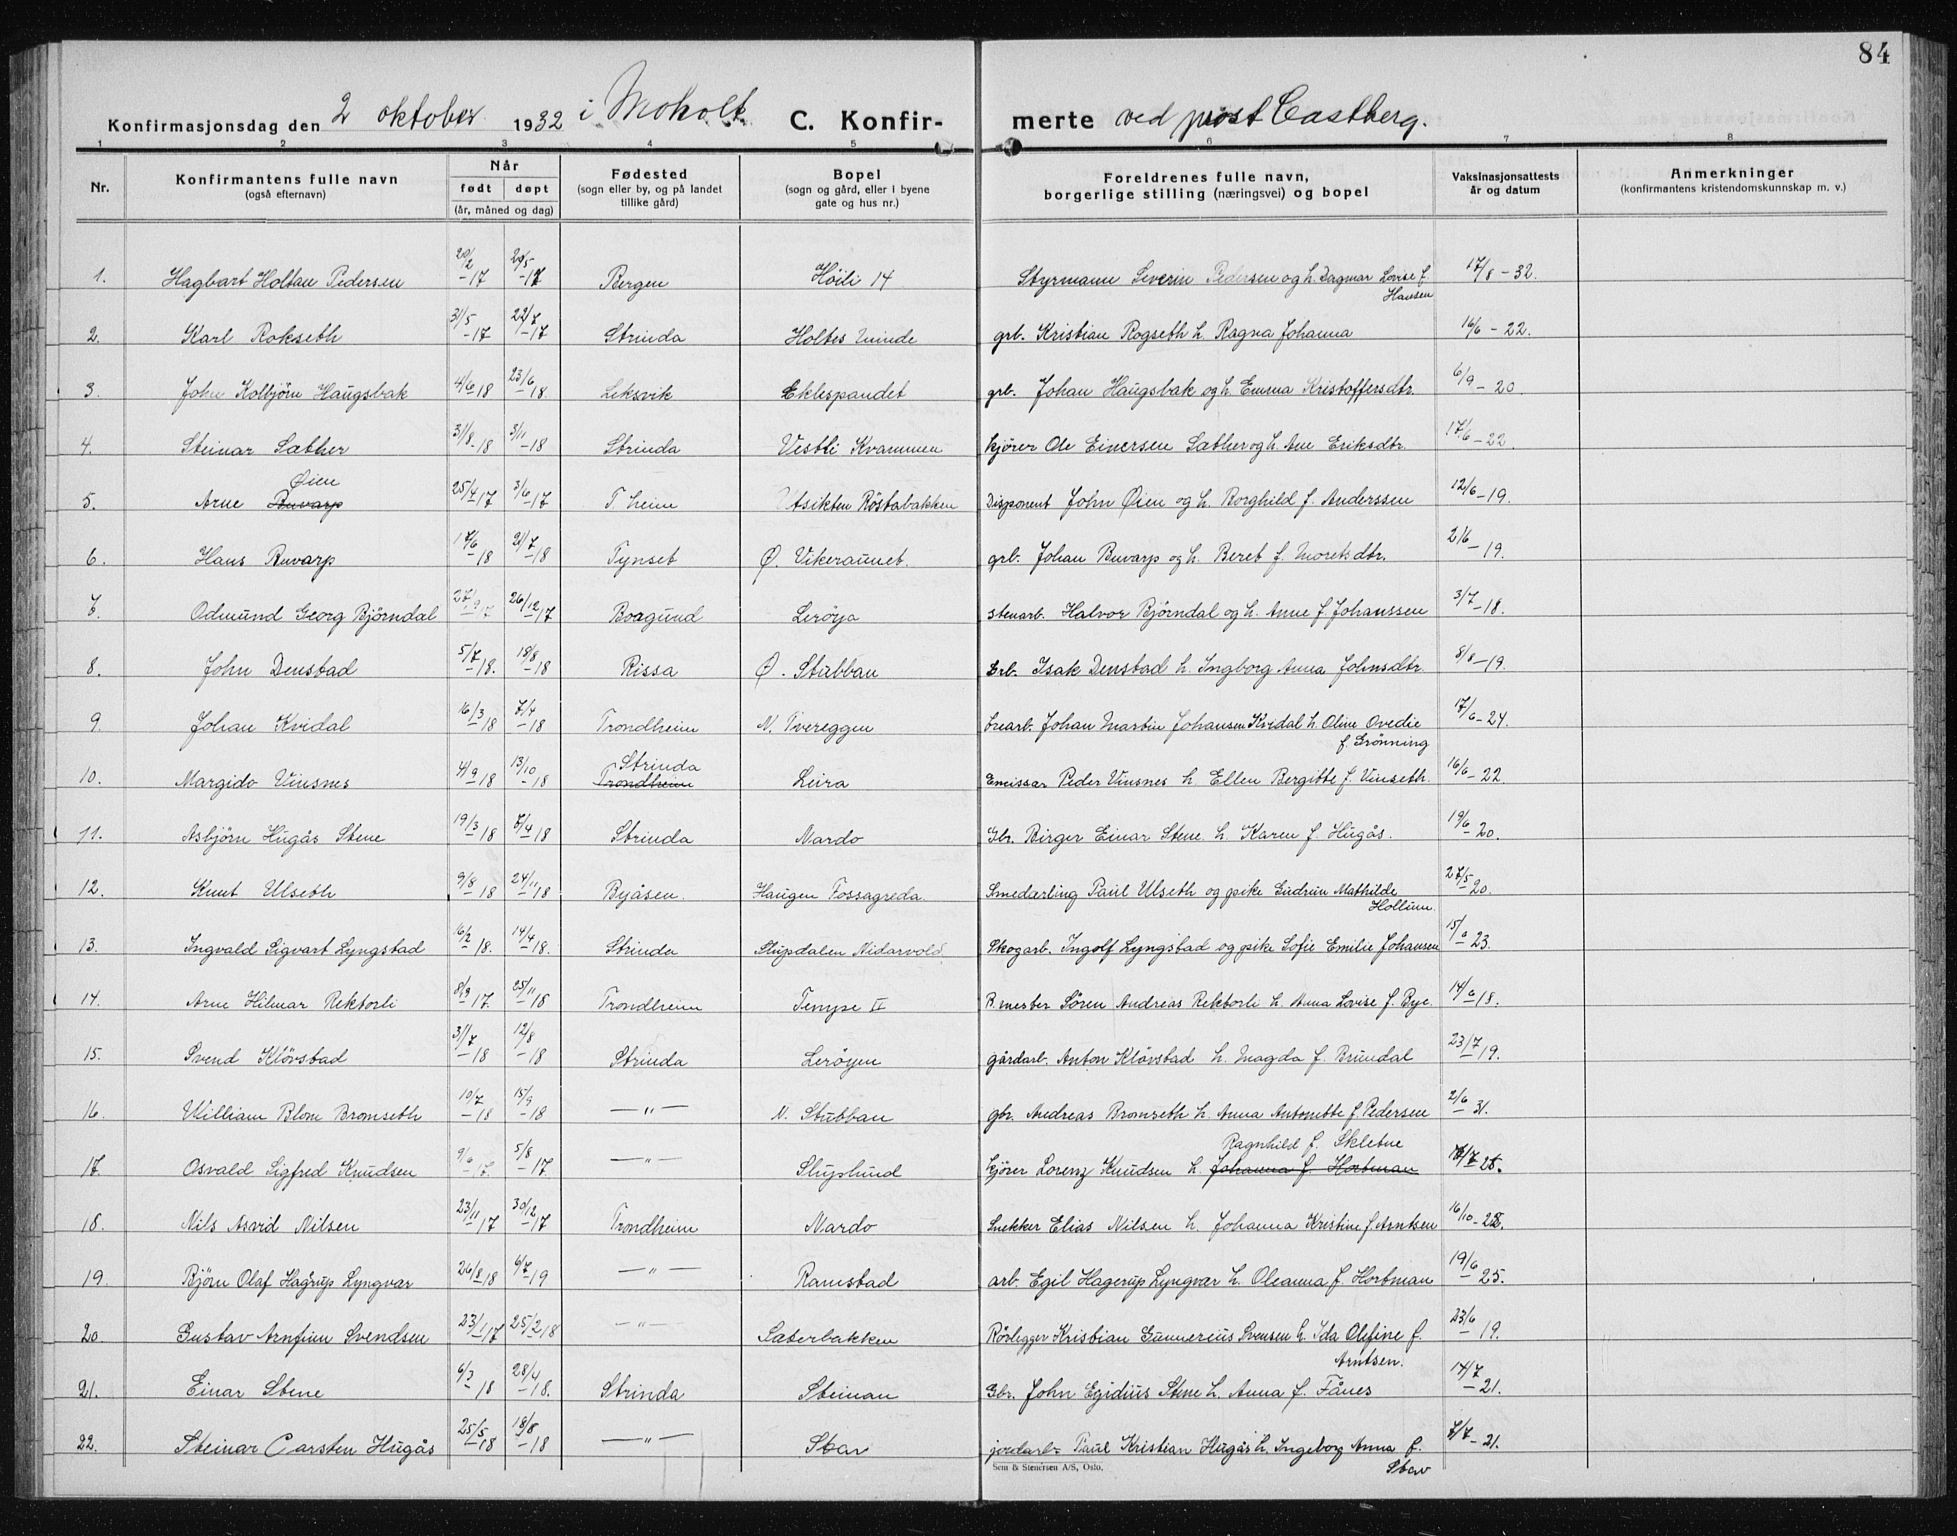 84
Konfirmasjonsdag den 2 oktober 1932 i Moholt C. Konfir- merte ved prost Castberg.
1 2 3 4 5 6 7 8
Nr. Konfirmantens fulle navn (også efternavn) Når født døpt (år, måned og dag) Fødested (sogn eller by, og på landet tillike gård) Bopel (sogn og gård, eller i byene gate og hus nr.) Foreldrenes fulle navn, borgerlige stilling (næringsvei) og bopel Vaksinasjonsattests år og datum Anmerkninger (konfirmantens kristendomskunnskap m. v.)
1. Hagbart Holtan Pedersen 20/2-17 29/5-17 Bergen Høili 14 Styrmann Severin Pedersen og h. Dagmar Lovise f. Hansen 17/8-32.
2. Karl Rokseth 31/5-17 22/7-17 Strinda Holtes minde grb. Kristian Rogseth h. Ragna Johanna 16/6-22.
3. John Kolbjørn Haugsbak 4/6 18 23/6 18. Leksvik Eklespandet grb. Johan Haugsbak og h. Emma Kristoffersdtr. 6/9-20
4. Steinar Sæther 31/8-18 3/11-18 Strinda Vestli Kvammen kjører Ole Einersen Sæther og h. Ane Eriksdtr. 17/6-22
5. Arne Buvarp Øien 25/4 17 3/6-17 T.heim Utsikten Röstabakken Disponent John Øien og h. Borghild f. Anderssen 12/6-19.
6. Hans Buvarp 17/6-18 21/7-18 Tynset Ø. Vikeraunet. grb. Johan Buvarp og h. Beret f. Moretsdtr. 2/6-19.
7. Odmund Georg Björndal 27/9 17 26/12 17 Borgund Lerøya stenarb. Halvor Björndal og h. Anne f. Johanssen 3/7-18.
8. John Denstad 5/7-18. 18/8-18 Rissa Ø. Stubban Grb. Isak Denstad h. Ingborg Anna Johnsdtr. 8/8-19.
9. Johan Kvidal 16/3 18 7/4-18 Trondheim N. Tvereggen Johan Martin Johansen Kvidal h. Oline Ovedie f. Grönning 17/6-24.
10. Margido Vinsnes 4/9 18 13/10-18 Trondheim Strinda Leira Emissær Peder Vinsnes h. Ellen Bergitte f. Vinseth. 16/6-22
11. Asbjörn Hugås Stene 19/3 18 7/4 18 Strinda Nardo Gbr. Birger Einar Stene h. Karen f. Hugås. 19/6-20.
12. Knut Ulseth 9/8-18 24/11 18 Byåsen. Haugen Fossagreda. Smedarling Paul Ulseth og pike Gudrun Mathilde Hollum. 27/5-20.
13. Ingvald Sigvart Lyngstad 16/2-18. 14/4-18. Strinda Slupdalen Nidarvold. Skogarb. Ingolf Lyngstad og pike Sofie Emilie Johansen 15/6 23.
14. Arne Hilmar Rektorli 8/9-17. 25/11-18 Trondheim Tempe II R.mester Sören Andreas Rektorli h. Anna Lovise f. Bye. 14/6 18.
15. Svend Klövstad 31/7-18 12/8-18 Strinda Leröyen gårdarb. Anton Klövstad h. Magda f. Brundal 23/7 19.
16. William Blom Bromseth 10/7-18 15/9-18 —„— N. Stubban gbr. Andreas Bromseth h. Anna Antonette f. Pedersen 2/6 31.
17. Osvald Sigfred Knudsen 9/6-17. 5/8-17. —„— Sluplund kjører Lorenz Knudsen h. Johanna f. Hortman Ragnhild f. Skletne 28.
18. Nils Asvid Nilsen 23/11-17 30/12-17 Trondheim Nardo Snekker Elias Nilsen h. Johanna Kristine f. Arntsen 16/10-
19. Björn Olaf Hagrup Lyngvar 26/8 18 6/7-19 —„— Ramstad arb. Egil Hagerup Lyngvar h. Oleanna f. Hortman 19/6-25.
20 Gustav Arnfinn Svendsen 23/1 17 25/2 18 —„— Sæterbakken Rörlegger Kristian Gunnerius Svensen h. Ida Olefine f. Arntsen. 23/6-19.
21. Einar Stene 6/3-18 28/4-18. Strinda Steinan Gbr. John Egidius Stene h. Anna f. Fånes 14/7-21.
22. Steinar Carsten Hugås 25/5-18 18/8-18 —„— Stav jordarb. Paul Kristian Hugås h. Ingeborg Anna f. Stav 7/7-21.
Sem & Stenersen A/S, Oslo.